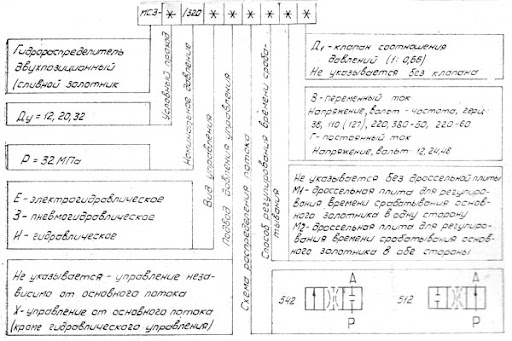 МСЭ-*/320 * * * * * * *
Гидрораспределитель
двухпозиционный
(сливной золотник
Ду = 12, 20, 32
Р = 32 МПа
Е - электрогидравлическое
З - пневмогидравлическое
И - гидравлическое
Не указывается - управление неза-
висимо от основного потока
Х - управление от основного потока
(кроме гидравлического управления)
Условный проход
Номинальное давление
Вид управления
Подвод давления управления
Схема распределения потока
Способ регулирования времени сраба-
тывания
Д1 - клапан соотношения
давлений (1:0,66)
Не указывается без клапана
В - переменный ток
Напряжение, вольт - частота, герц:
36, 110 (127), 220, 380-50, 220-60
Г - постоянный ток
Напряжение, вольт: 12, 24, 48
Не указывается без дроссельной плиты
М1 - дроссельная плита для регулиро-
вания времени срабатывания основ-
ного золотника в одну сторону
М2 - дроссельная плита для регулиро-
вания времени срабатывания основ-
ного золотника в обе стороны
542 А Р 512 А Р